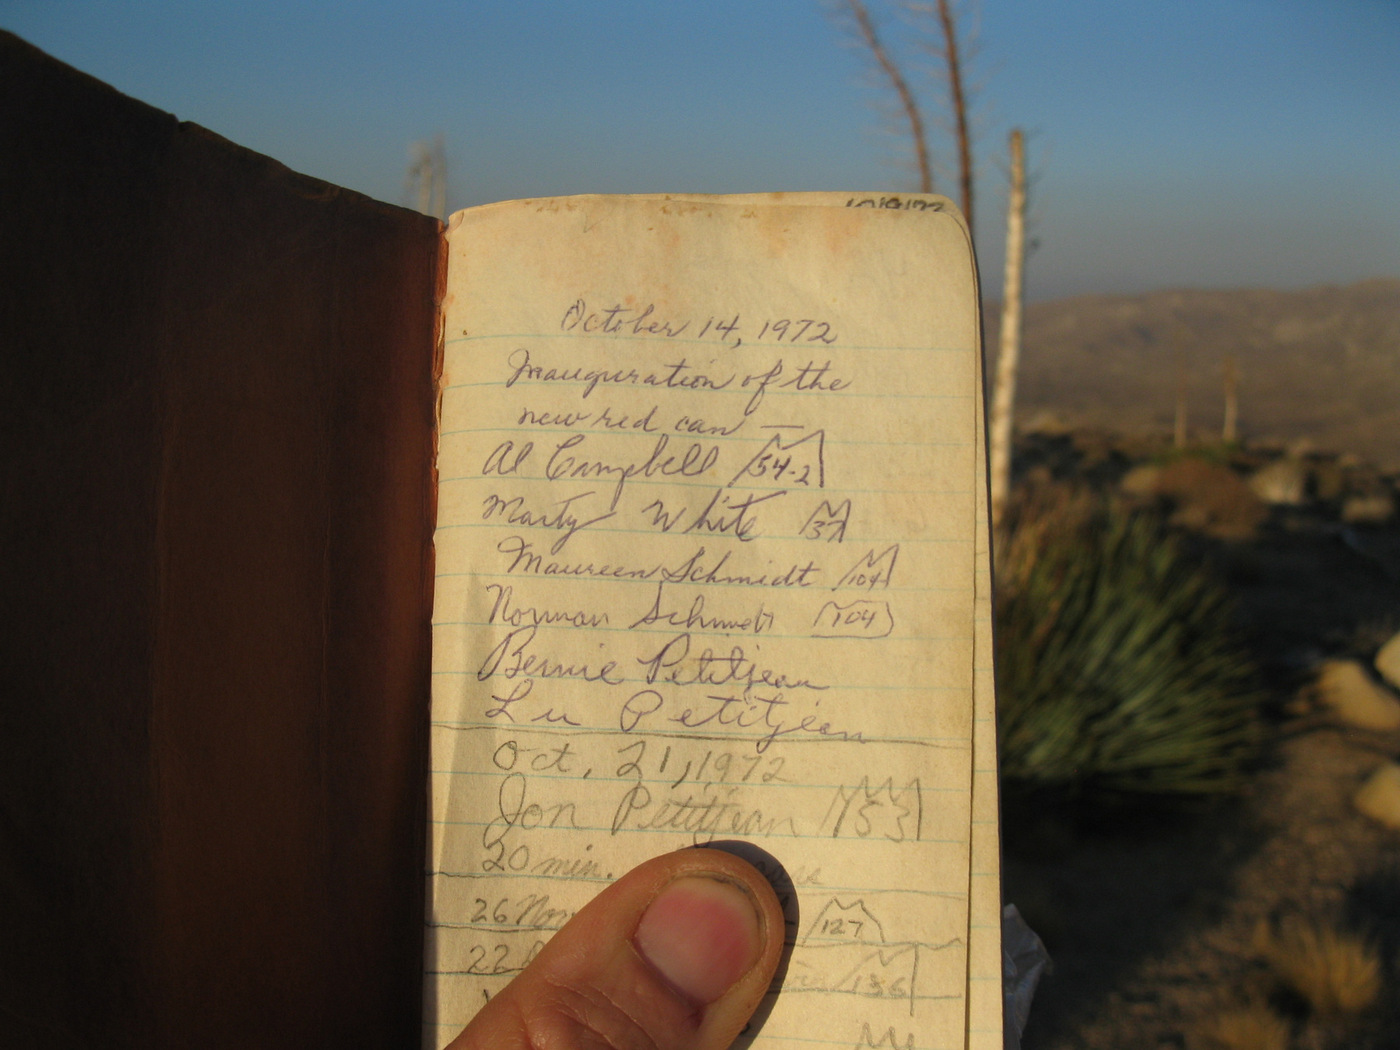 October 14, 1972
Inauguration of the
new red can —
Al Campbell 54-2
Marty White 37
Maureen Schmidt 104
Norman Schmidt 104
Bernie Petitjean
Lu Petitjean
Oct. 21, 1972
Jon Petitjean 53
20 min.
26 Nov 127
22 136